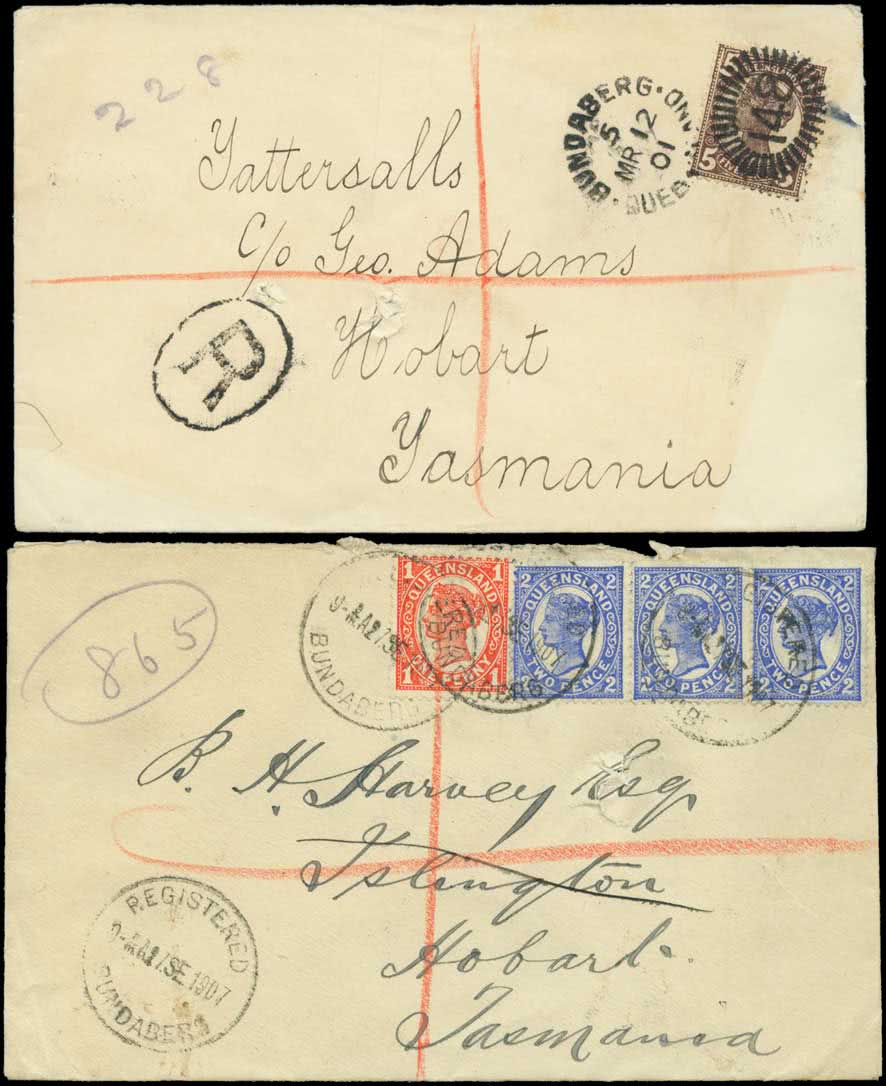 228
Tattersalls
C/o Geo. Adams
Hobart
Tasmania
BUNDABERG
MR 12
01
148
5
QUEENSLAND
R
865
1 QUEENSLAND 1
1 ONE PENNY 1
2 QUEENSLAND 2
2 TWO PENCE 2
2 QUEENSLAND 2
2 TWO PENCE 2
2 QUEENSLAND 2
2 TWO PENCE 2
BUNDABERG
B. H. Harvey Esq
Islington
Hobart.
Tasmania
REGISTERED
SE 1907
BUNDABERG